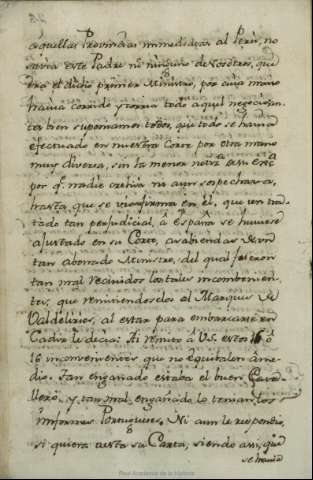 aquellas Provincias inmediatas al Perù, no
este Padre ni ninguno de vosotros, que
era el dicho primer Ministro, por cuia mano
havia corrido, y corria todo aquel negocio;
bien suponiamos todos, que todo se havia
efectuado en nuestra Corte por otra mano
muy diversa, sin la menor
por q.e nadie crehia ni aun sospechava,
hasta que se vio firma en él, que un tra-
tado tan perjudicial à España se huviese
ajustado en su Corte, à sabiendas de un
tan abonado Ministro, del qual fueron
tan mal recividos los tales inconvenien-
tes, que remitiendoselos al Marques de
Valdelirios, al estar para embarcarse en
Cadiz le decia: Ai remito à V.S. estos 16 ò
16 inconvenientes que no equivalen à me-
dio. Tan engañado estaba el buen Cava-
llero, y tan mal engañado lo tenian los
informes Portugueses. Ni aun le respondio,
si quiera à esta su Carta, siendo assi, que
se havia
Real Academia de la Historia